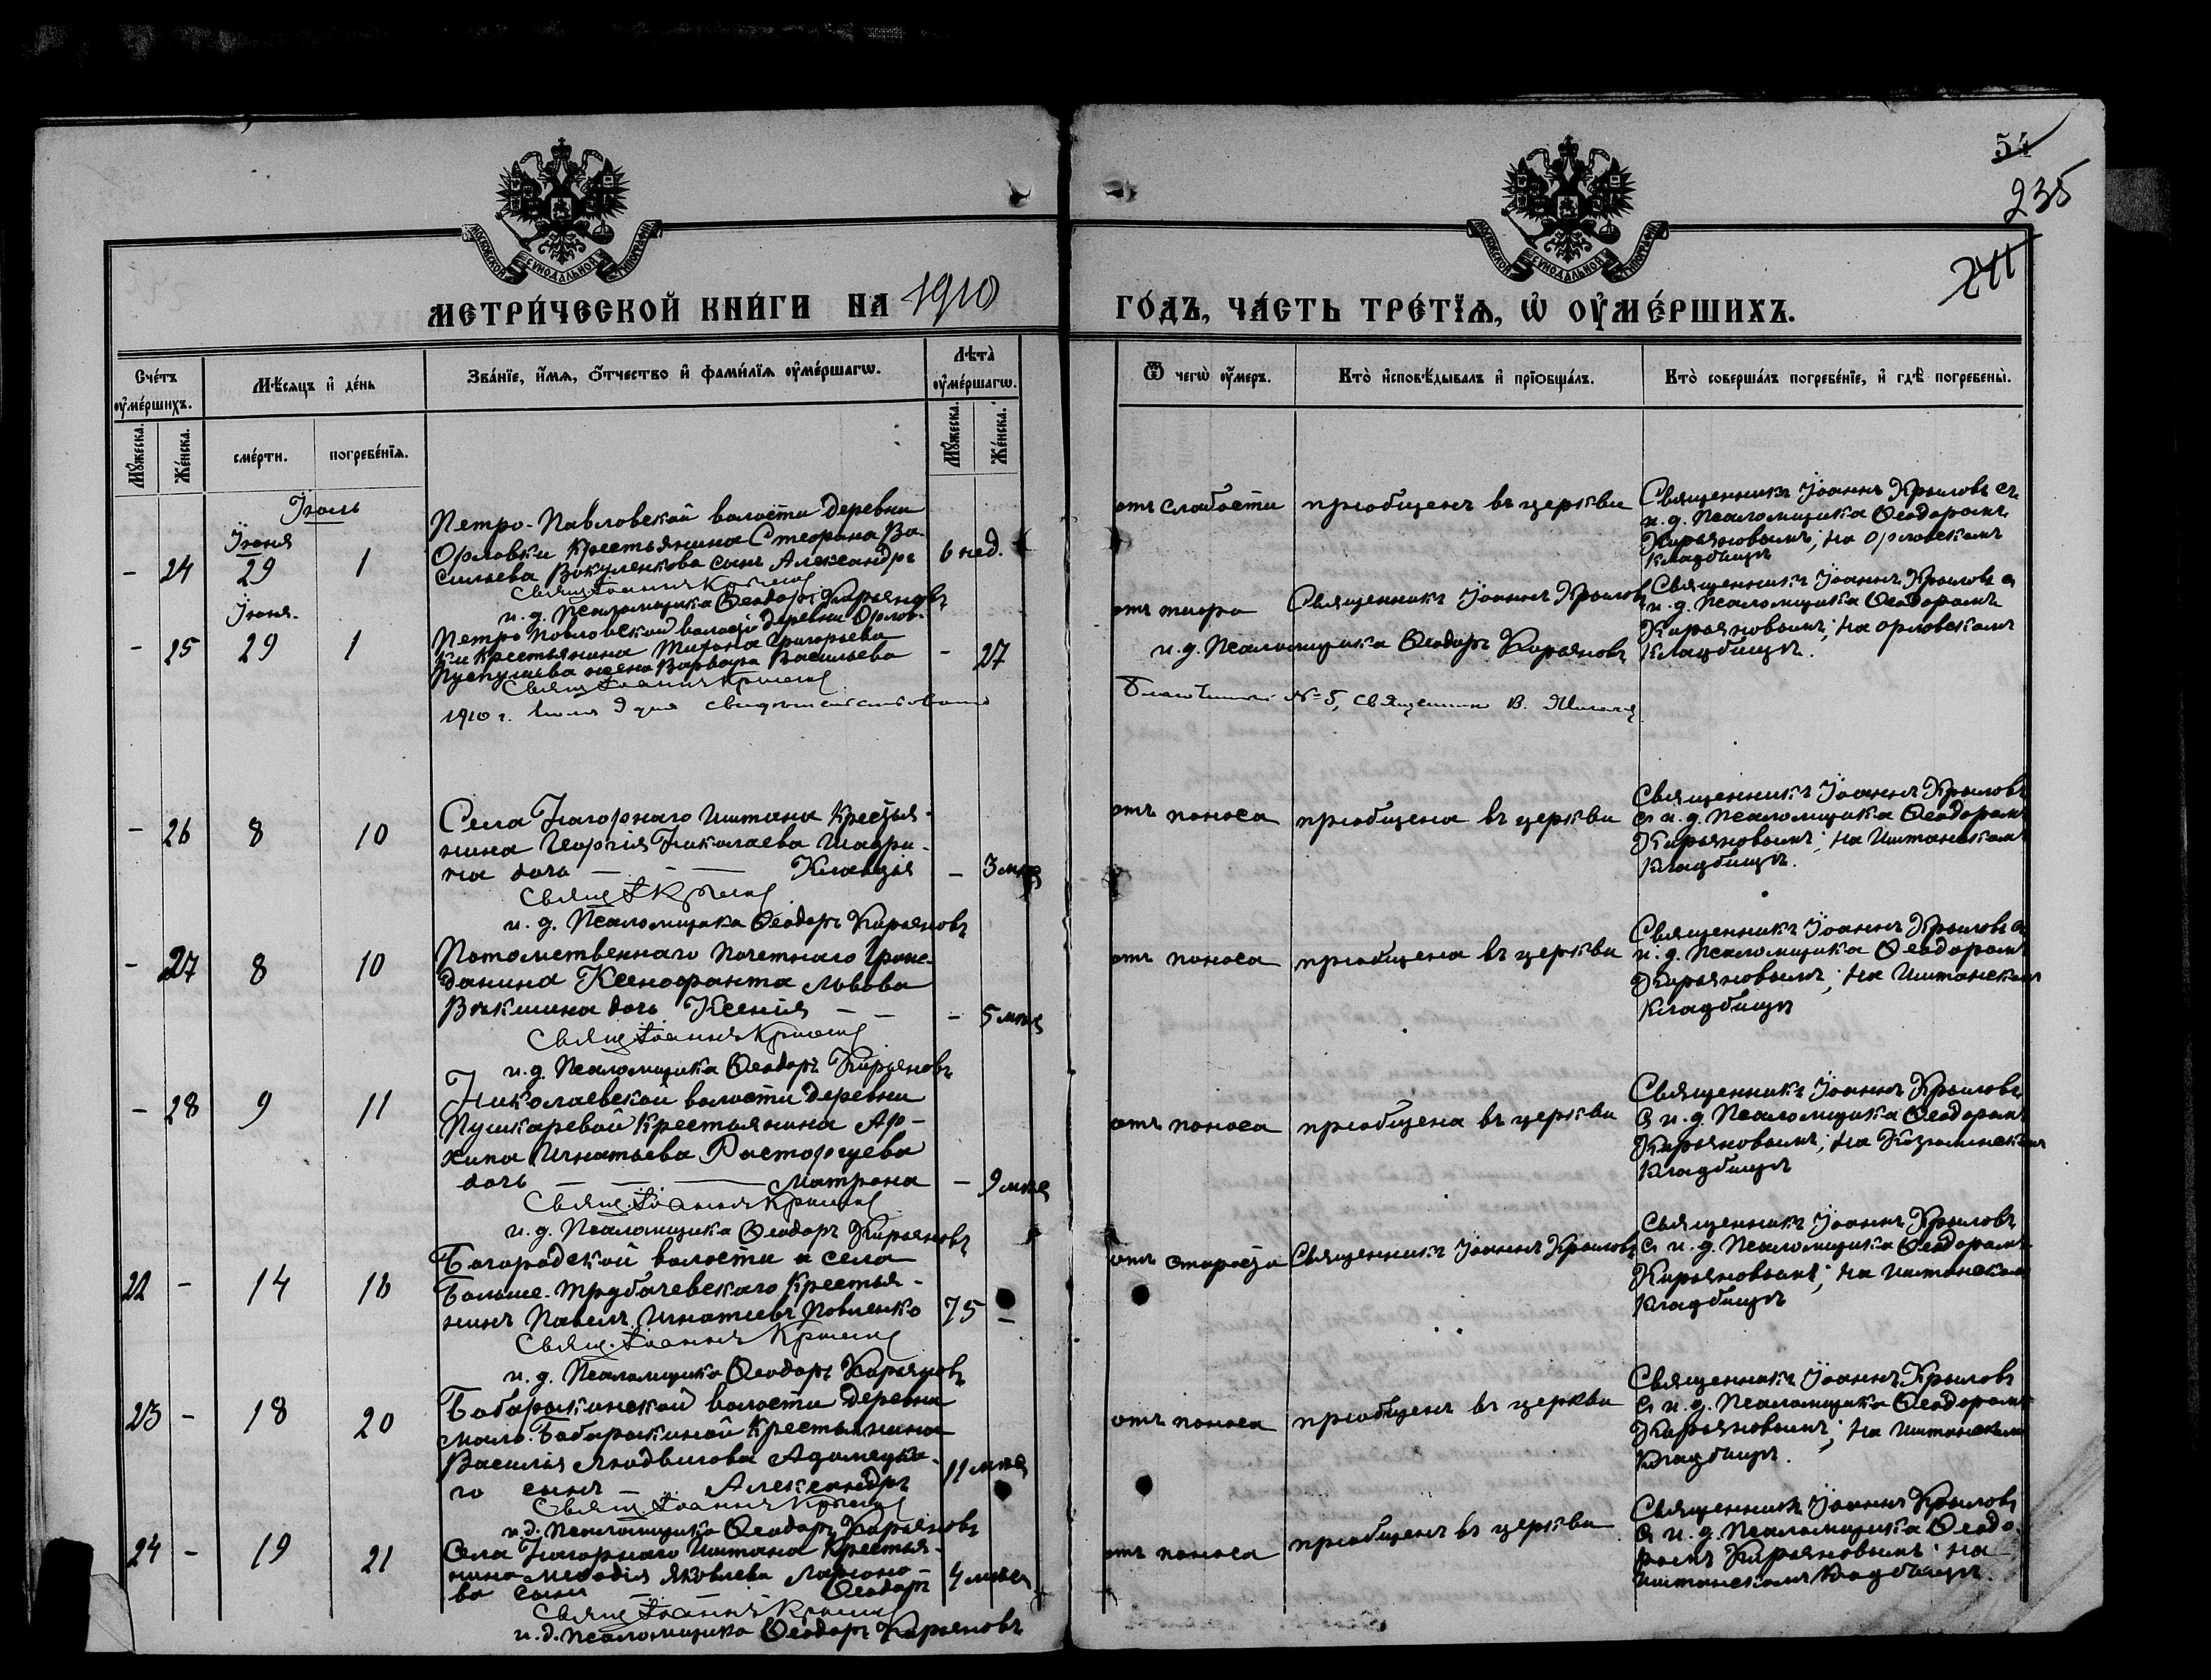 54
235
241
МОСКОВСКОЙ СѴНОДАЛЬНОЙ ТИПОГРАФІИ
МОСКОВСКОЙ СѴНОДАЛЬНОЙ ТИПОГРАФІИ
МЕТРИ́ЧЕСКОЙ КНИ́ГИ НА 1910
ГО́ДЪ, ЧА́СТЬ ТРЕ́ТЇѦ, Ѡ҆ ОУ҆МЕ́РШИХЪ.
Сче́тъ оу҆ме́ршихъ.
Мѣ́сѧцъ и҆ де́нь
Зва́нїе, и҆́мѧ, ѻ҆́тчество и҆ фами́лїѧ оу҆ме́ршагѡ.
Лѣ́та̀ оу҆ме́ршагѡ.
Ѿ чегѡ̀ оу҆́меръ.
Кто̀ и҆сповѣ́дывалъ и҆ прїѡбща́лъ.
Кто̀ соверша́лъ погребе́нїе, и҆ гдѣ̀ погребены̀.
Мꙋ́жеска.
Же́нска.
сме́рти.
погребе́нїѧ.
Мꙋ́жеска.
Же́нска.
Іюль
Петро-Павловской волости деревни
Іюня
Орловки крестьянина Стефана Ва-
- 24 29 1 сильева Вакуленкова сынъ Александръ 6 нед.
Свящ. Іоаннъ Крылов
и. д. Псаломщика Ѳеодоръ Кирьяновъ
отъ слабости
приобщенъ въ церкви
Священникъ Іоаннъ Крыловъ съ
и. д. Псаломщика Ѳеодоромъ
Кирьяновымъ; на Орловскомъ
кладбищѣ
Іюня.
Петро Павловской волости деревни Орлов-
- 25 29 1 ки крестьянина Тихона Григорьева
жена Варвара Васильева - 27
Свящ. Іоаннъ Крылов
отъ тифа
Священникъ Іоаннъ Крыловъ
и. д. Псаломщика Ѳеодоръ Кирьяновъ
Священникъ Іоаннъ Крыловъ съ
и. д. Псаломщика Ѳеодоромъ
Кирьяновымъ; на Орловскомъ
кладбищѣ.
1910 г. Іюля 9 дня свидѣтельствовалъ
Благочинный № 5, священник В.
Села Нагорнаго Иштана крестья-
- 26 8 10 нина Георгія Николаева Шадри-
на дочь — - — Клавдія - 3 мѣся
Свящ. І Крылов
и. д. Псаломщика Ѳеодоръ Кирьяновъ
отъ поноса
приобщена въ церкви
Священникъ Іоаннъ Крыловъ
съ и. д. Псаломщика Ѳеодоромъ
Кирьяновымъ; на Иштанскомъ
кладбищѣ.
- 27 8 10 Потомственнаго Почетнаго Граж-
данина Ксенофонта Львова
Вакшина дочь Ксенія — — - 5 мѣся
Свящ. Іоаннъ Крылов
и. д. Псаломщика Ѳеодоръ Кирьяновъ
отъ поноса
приобщена въ церкви
Священникъ Іоаннъ Крыловъ съ
и. д. Псаломщика Ѳеодоромъ
Кирьяновымъ; на Иштанском
кладбищѣ
- 28 9 11 Николаевской волости деревни
Пушкаревой крестьянина Ар-
хипа Игнатьева Расторгуева
дочь — — — Матрона - 9 мѣся
Свящ. Іоаннъ Крылов
и. д. Псаломщика Ѳеодоръ Кирьяновъ
отъ поноса
приобщена въ церкви
Священникъ Іоаннъ Крыловъ
съ и. д. Псаломщика Ѳеодоромъ
Кирьяновымъ; на Козюлинскомъ
кладбищѣ
Богородской волости и села
22 - 14 16 Больше-Трубачевскаго крестья-
нинъ Павелъ Игнатіевъ Павленко 75 -
Свящ. Іоаннъ Крылов
и. д. Псаломщика Ѳеодоръ Кирьяновъ
отъ старости
Священникъ Іоаннъ Крыловъ
Священникъ Іоаннъ Крыловъ
съ и. д. Псаломщика Ѳеодоромъ
Кирьяновымъ; на Иштанском
кладбищѣ
23 - 18 20 Бабарыкинской волости деревни
Мало-Бабарыкиной крестьянина
Василія Людвигова Адамецка-
го сынъ — Александръ 11 мѣся
Свящ Іоаннъ Крылов
и. д. Псаломщика Ѳеодоръ Кирьяновъ
отъ поноса
приобщенъ въ церкви
Священникъ Іоаннъ Крыловъ
съ и. д. Псаломщика Ѳеодоромъ
Кирьяновымъ; на Иштанском
кладбищѣ.
24 - 19 21 Села Нагорнаго Иштана крестья-
нина Меѳодія Яковлева Ларіоно-
ва сынъ — — Ѳеодоръ 4 мѣся
Свящ Іоаннъ Крылов
и. д. Псаломщика Ѳеодоръ Кирьяновъ
отъ поноса
приобщенъ въ церкви
Священникъ Іоаннъ Крыловъ
съ и. д. Псаломщика Ѳеодо-
ромъ Кирьяновымъ; на
Иштанскомъ кладбищѣ.